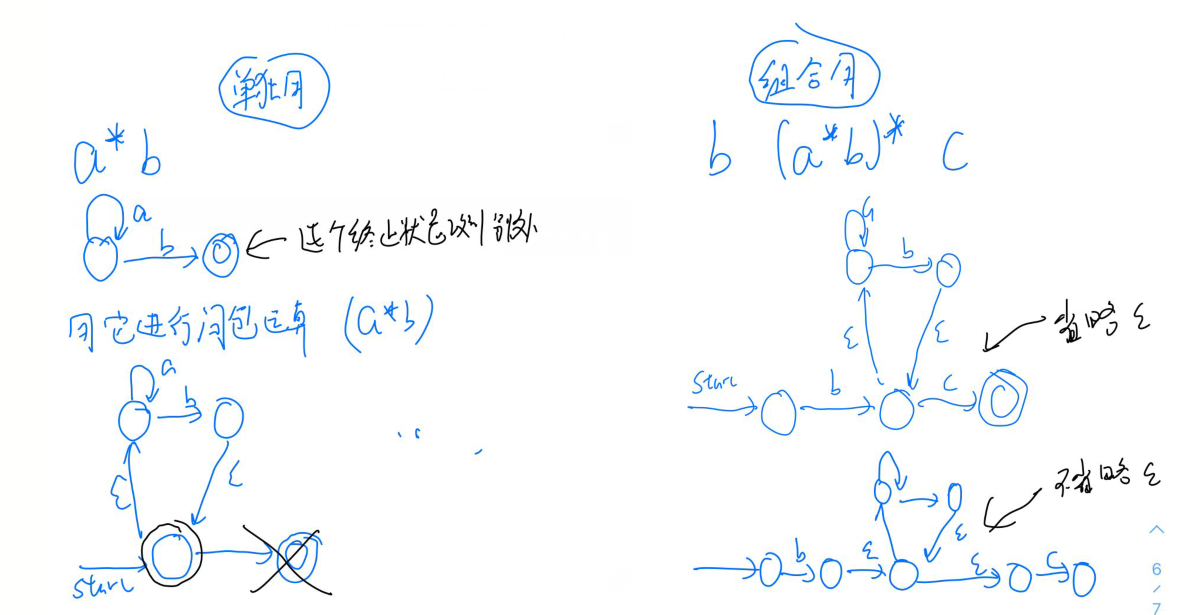 单独用
a* b
a
b
这个终止状态
用它进行闭包运算 (a*b)
a
b
ε
ε
start
组合用
b (a*b)* c
a
b
ε
ε
省略 ε
start
b
c
不省略 ε
ε
b
ε
ε
c
6
/
7